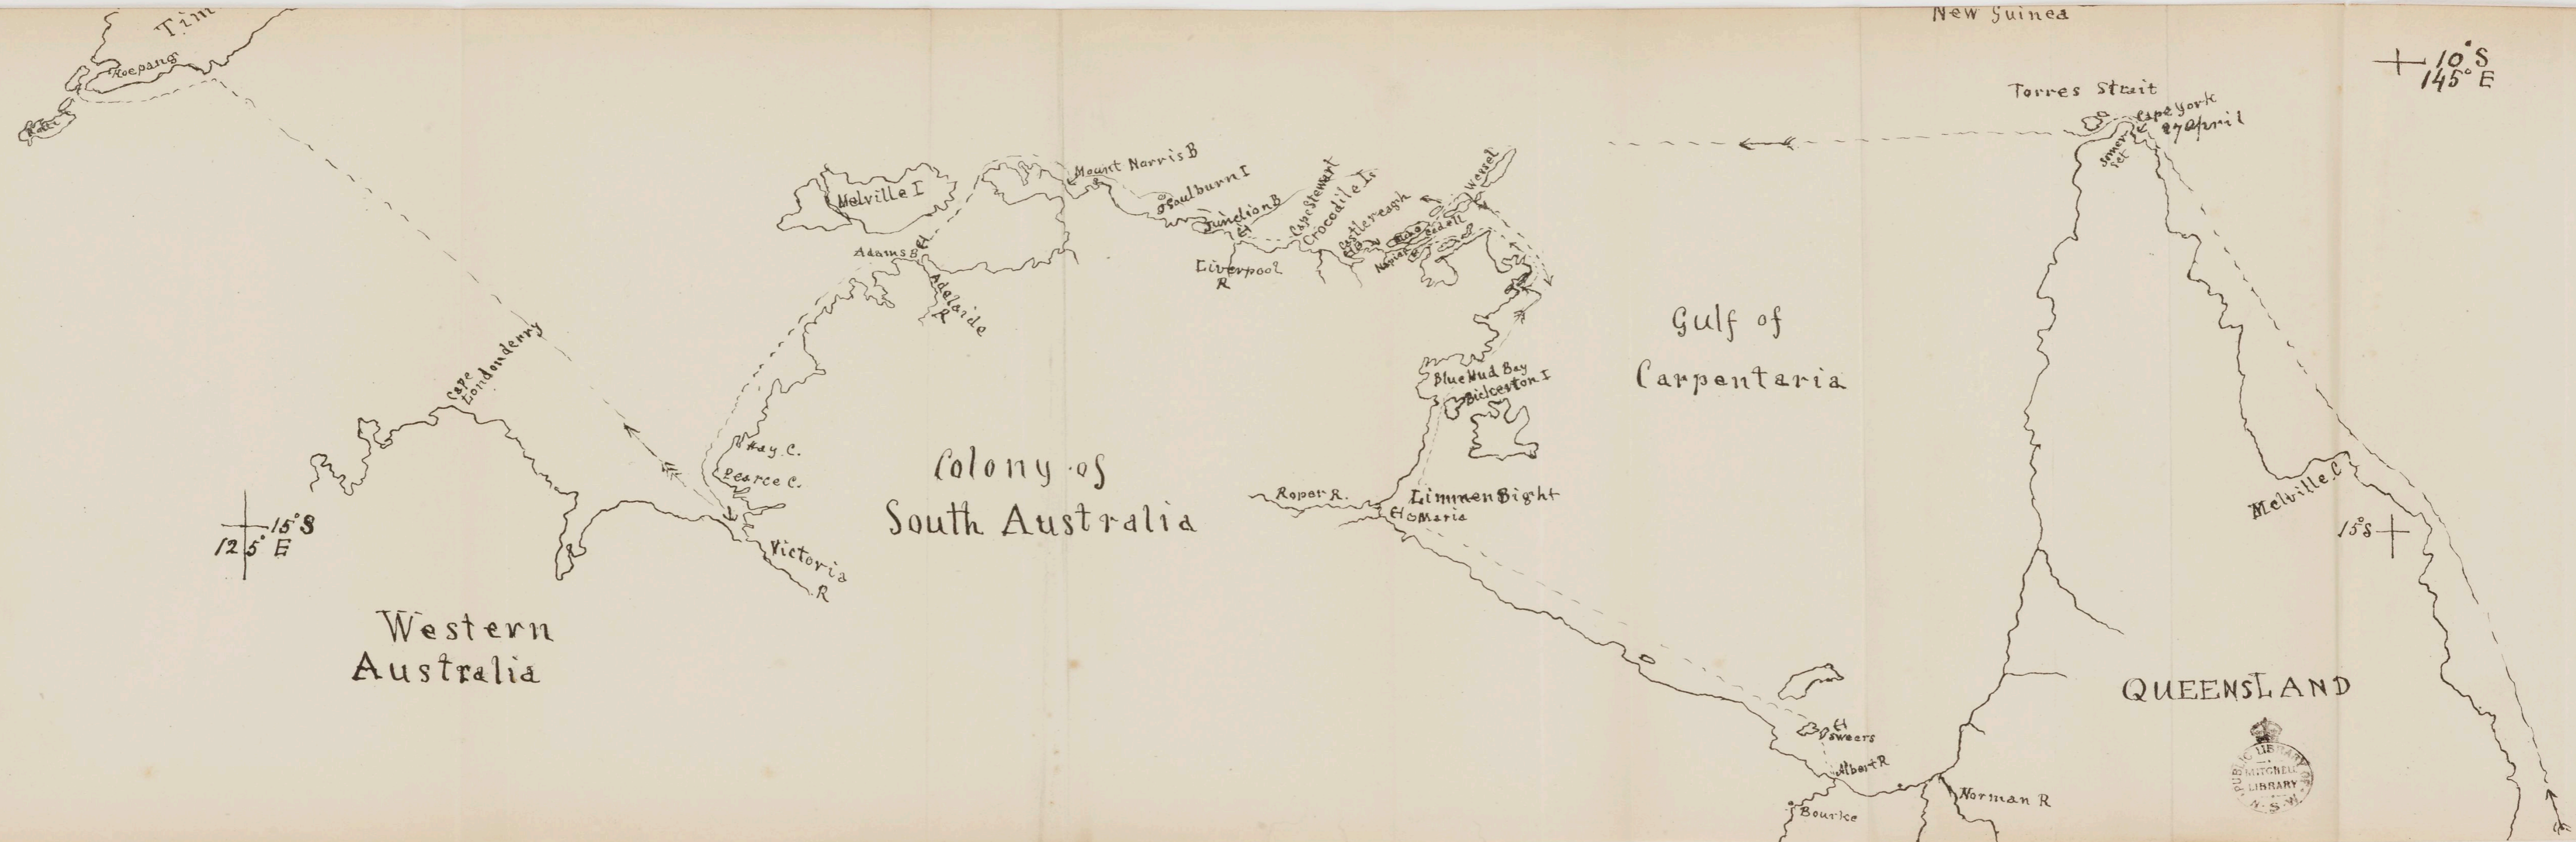 Tim
Koepang
Rotti
New Guinea
10° S
145° E
Torres Strait
Cape York
27 April
Somer
set
Mount Norris B
Melville I
Goulburn I
Junction B
Cape Stewart
Crocodile Is
Castlereagh
Wessel
Cadell
Napier
Adams B
Adelaide
R
Liverpool
R
Gulf of
Carpentaria
Cape
Londonderry
Blue Mud Bay
Bickerton I
Hay C.
Pearce C.
Colony of
South Australia
Roper R.
Limmen Bight
Maria
Melville C
15° S
125° E
15° S
Victoria
R
Western
Australia
QUEENSLAND
Sweers
Albert R
Norman R
Bourke
PUBLIC LIBRARY OF
MITCHELL
LIBRARY
N.S.W.